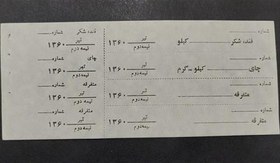 شماره...
قند، شکر   کیلو   تیر ۱۳۶۰ نیمه دوم
شماره...
چای   کیلو - گرم   تیر ۱۳۶۰ نیمه دوم
شماره...
متفرقه   تیر ۱۳۶۰ نیمه دوم
شماره...
متفرقه   تیر ۱۳۶۰ نیمه دوم
شماره...
قند، شکر
تیر ۱۳۶۰ نیمه دوم
شماره...
چای
تیر ۱۳۶۰ نیمه دوم
شماره...
متفرقه
تیر ۱۳۶۰ نیمه دوم
شماره...
متفرقه
تیر ۱۳۶۰ نیمه دوم